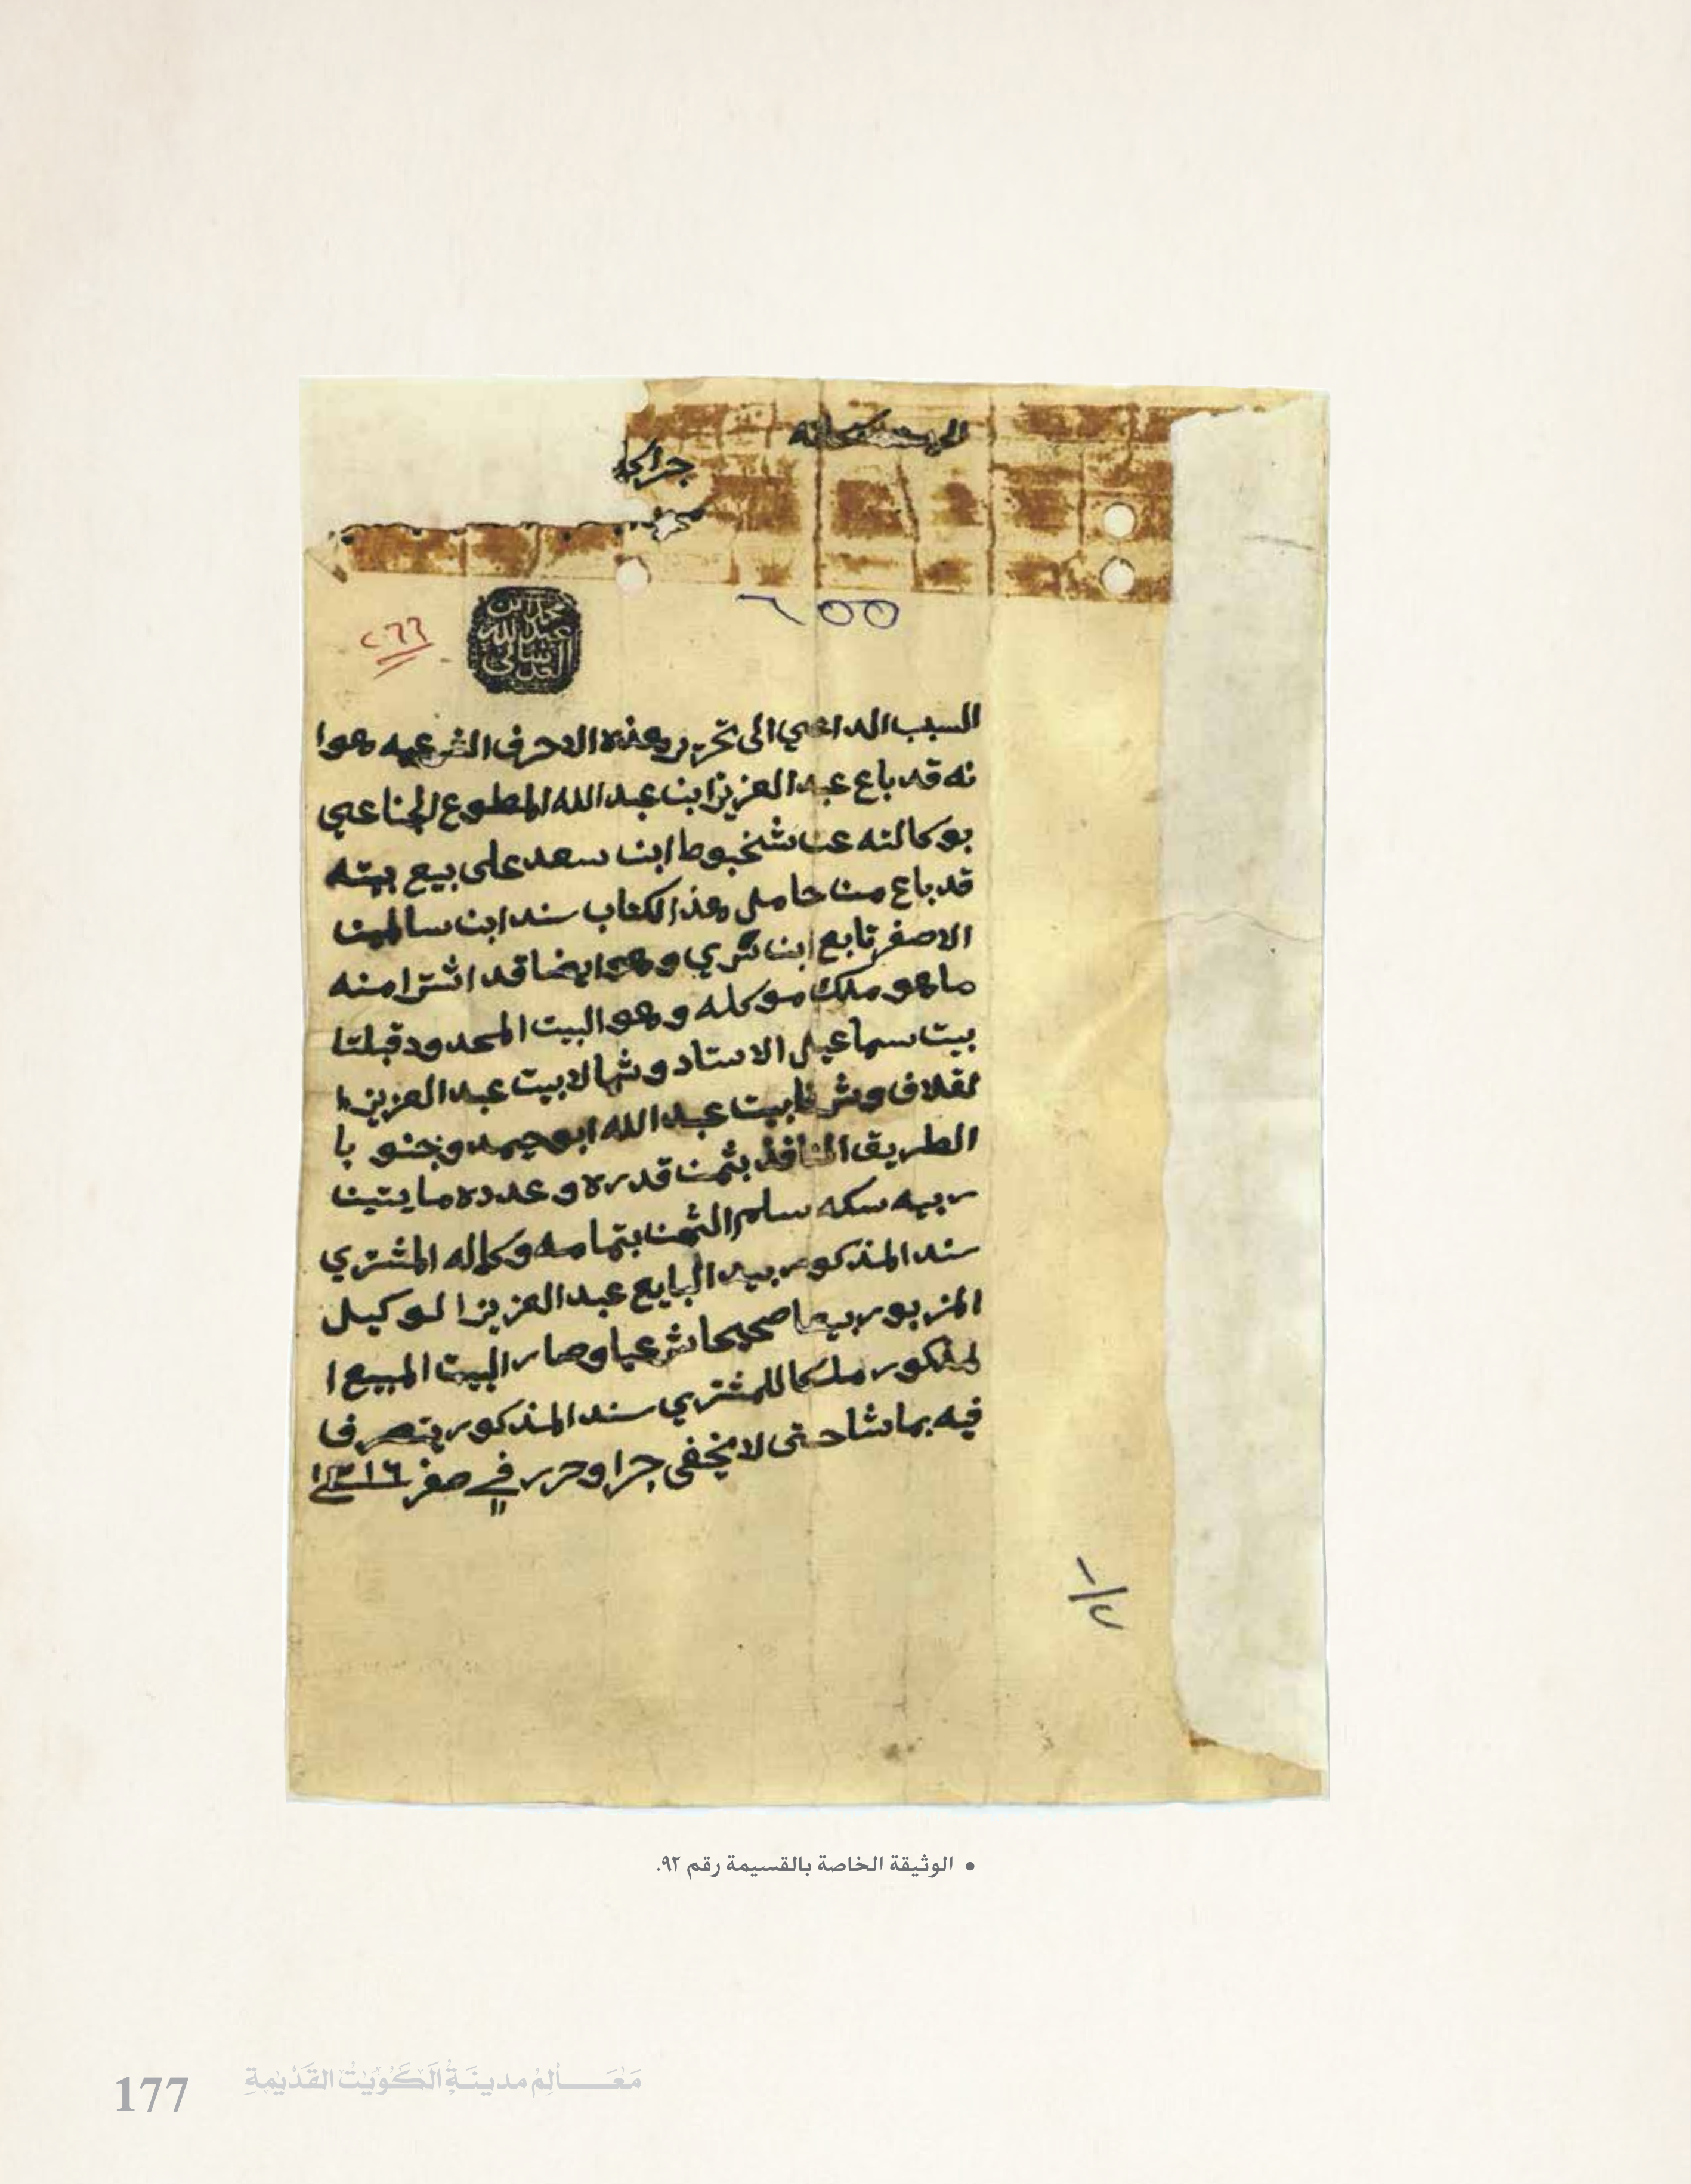 الحمد لله سبحانه
جرا كما
محمد ابن
عبد الله
العدساني
٢٦٦
٦٥٥
السبب الداعي الى تحرير هذه الاحرف الشرعيه هوا
نه قد باع عبد العزيز ابن عبد الله المطوع الجناعي
بوكالته عن شخبوط ابن سعد على بيع بيته
قد باع من حامل هذ الكتاب سند ابن سالمين
الاصفر تابع ابن شري وهو ايضا قد اشترا منه
ما هو ملك موكله وهو البيت المحدود قبلتا
بيت سماعيل الاستاد وشمالا بيت عبد العزيز ا
لقلاف وشرقا بيت عبد الله ابو حيمد وجنو با
الطريق النافذ بثمن قدره وعدده مايتين
ربيه سكه سلم الثمن بتمامه وكماله المشتري
سند المذكور بيد البايع عبد العزيز الوكيل
المزبور بيعا صحيحا شرعيا وصار البيت المبيع ا
لمذكور ملكا للمشتري سند المذكور يتصرف
فيه بما شا حتى لا يخفى جرا وحرر في ١١ صفر ١٣١٦
• الوثيقة الخاصة بالقسيمة رقم ٩٢.
مَعَالِمْ مدينَةُ الكُوَيْتْ القَدْيمةِ
177